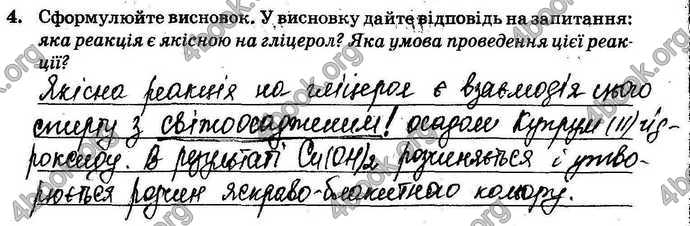 4. Сформулюйте висновок. У висновку дайте відповідь на запитання:
яка реакція є якісною на гліцерол? Яка умова проведення цієї реак-
ції?
Якісна реакція на гліцерол є взаємодія цього
спирту з світоосадженим! осадом Купрум (II) гід-
роксиду. В результаті Cu(OH)2 розчиняється і утво-
рюється розчин яскраво-блакитного кольору.
4book.org